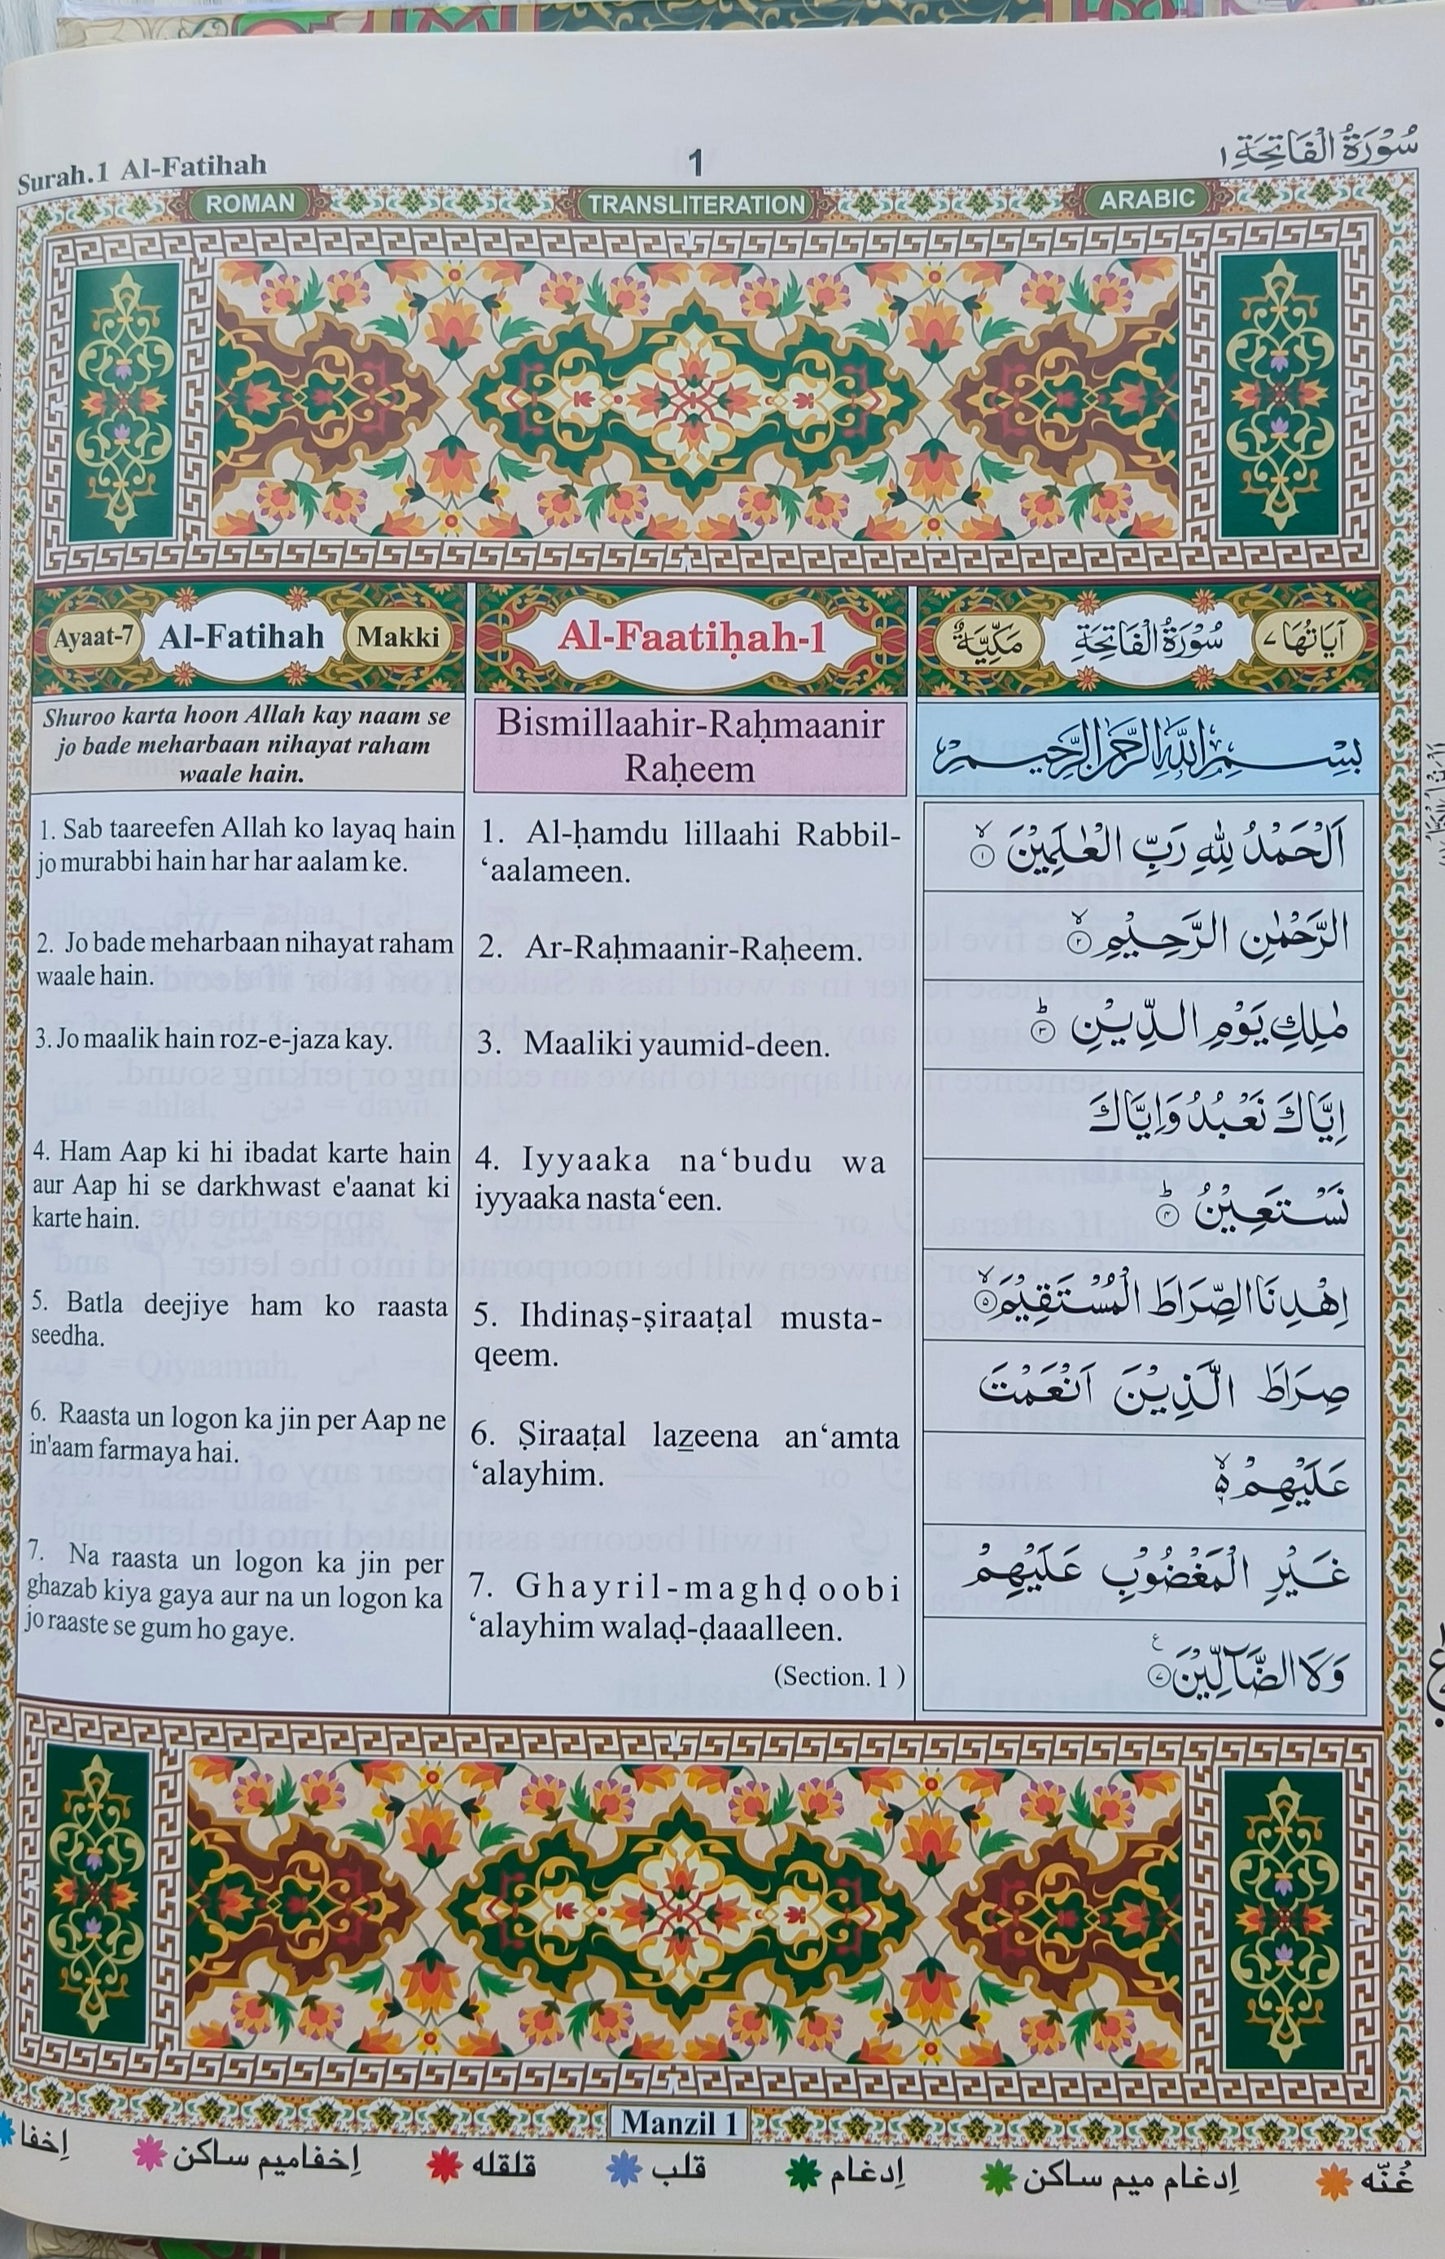 Surah.1 Al-Fatihah
1
سُوْرَةُ الْفَاتِحَةِ ١
ROMAN
TRANSLITERATION
ARABIC
Ayaat-7
Al-Fatihah
Makki
Shuroo karta hoon Allah kay naam se
jo bade meharbaan nihayat raham
waale hain.
1. Sab taareefen Allah ko layaq hain
jo murabbi hain har har aalam ke.
2. Jo bade meharbaan nihayat raham
waale hain.
3. Jo maalik hain roz-e-jaza kay.
4. Ham Aap ki hi ibadat karte hain
aur Aap hi se darkhwast e'aanat ki
karte hain.
5. Batla deejiye ham ko raasta
seedha.
6. Raasta un logon ka jin per Aap ne
in'aam farmaya hai.
7. Na raasta un logon ka jin per
ghazab kiya gaya aur na un logon ka
jo raaste se gum ho gaye.
Al-Faatiḥah-1
Bismillaahir-Raḥmaanir
Raḥeem
1. Al-ḥamdu lillaahi Rabbil-
‘aalameen.
2. Ar-Raḥmaanir-Raḥeem.
3. Maaliki yaumid-deen.
4. Iyyaaka na‘budu wa
iyyaaka nasta‘een.
5. Ihdinaṣ-ṣiraaṭal musta-
qeem.
6. Ṣiraaṭal lazeena an‘amta
‘alayhim.
7. Ghayril-maghḍoobi
‘alayhim walaḍ-ḍaaalleen.
(Section. 1 )
اٰيَاتُهَا ٧
سُوْرَةُ الْفَاتِحَةِ
مَكِّيَّةٌ
بِسْمِ اللّٰهِ الرَّحْمٰنِ الرَّحِيْمِ
اَلْحَمْدُ لِلّٰهِ رَبِّ الْعٰلَمِيْنَ ۙ ١
الرَّحْمٰنِ الرَّحِيْمِ ۙ ٢
مٰلِكِ يَوْمِ الدِّيْنِ ؕ ٣
اِيَّاكَ نَعْبُدُ وَاِيَّاكَ
نَسْتَعِيْنُ ؕ ٤
اِهْدِنَا الصِّرَاطَ الْمُسْتَقِيْمَ ۙ ٥
صِرَاطَ الَّذِيْنَ اَنْعَمْتَ
عَلَيْهِمْ ۙ
غَيْرِ الْمَغْضُوْبِ عَلَيْهِمْ
وَلَا الضَّآلِّيْنَ ٧
Manzil 1
غُنّه
اِدغام ميم ساكن
اِدغام
قلب
قلقله
اِخفاميم ساكن
اِخفا